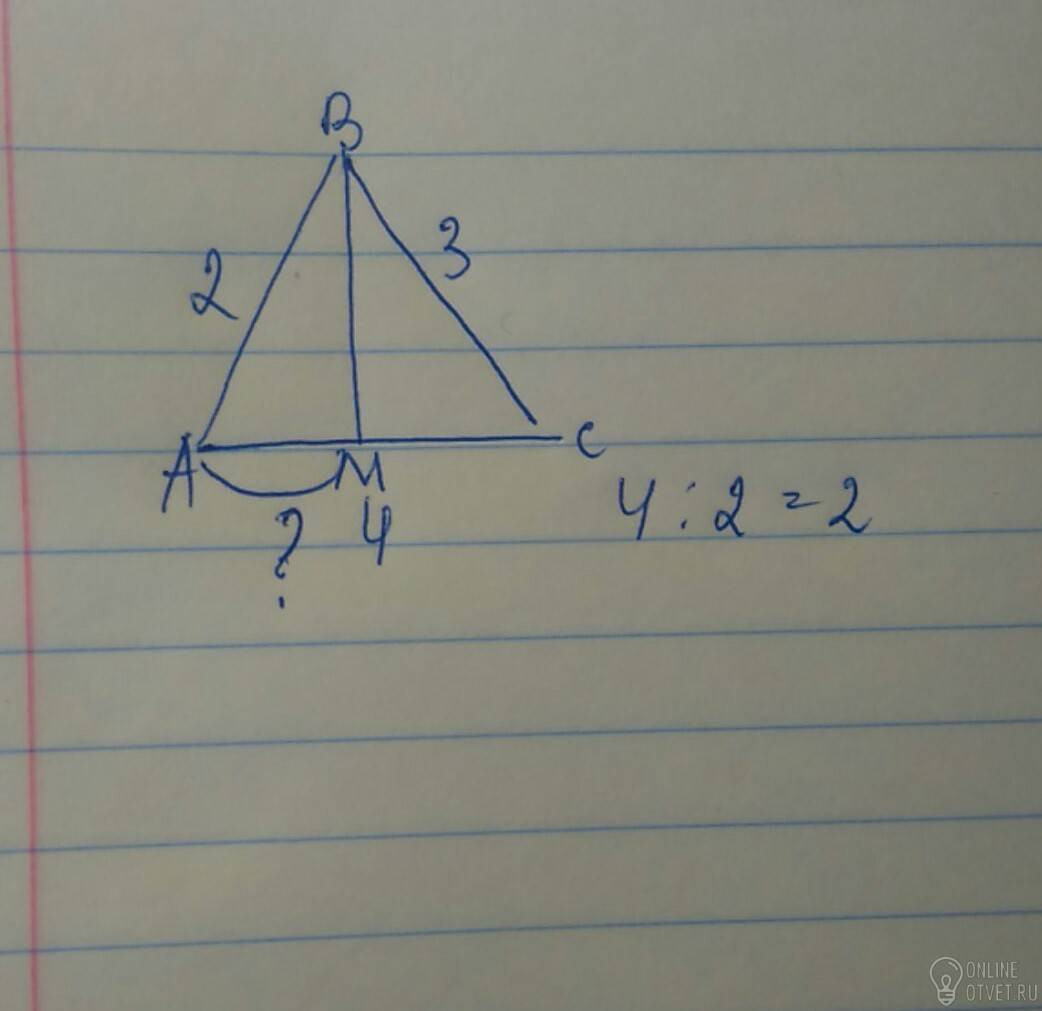 B
2
3
A
M
C
?
4
4 : 2 = 2
ONLINE
OTVET.RU